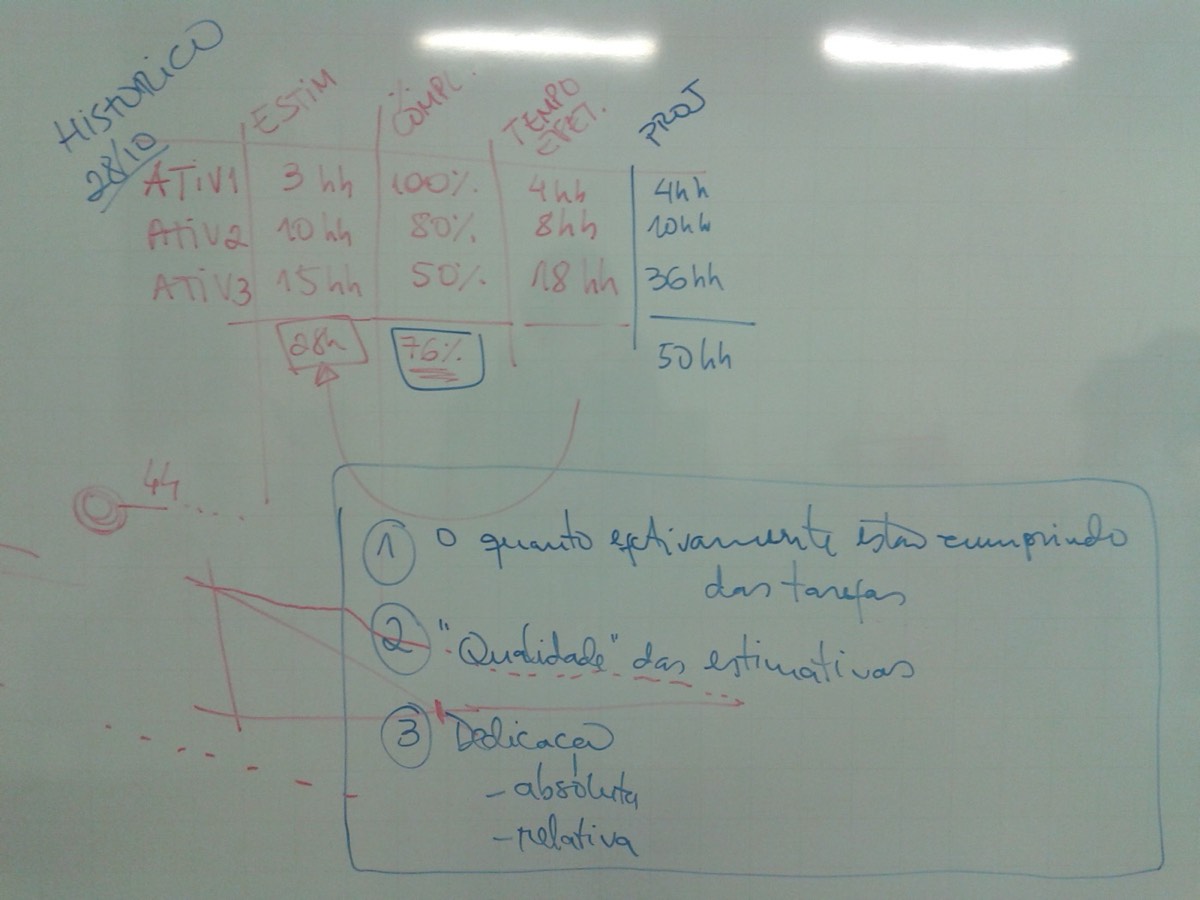 HISTORICO
28/10
ESTIM % COMPL. TEMPO EFET. PROJ
ATIV1 3 hh 100% 4hh 4hh
ATIV2 10 hh 80% 8hh 10hh
ATIV3 15hh 50% 18 hh 36hh
28h 76% 50hh
44
1 O quanto efetivamente estão cumprindo
das tarefas
2 "Qualidade" das estimativas
3 Dedicação
- absoluta
- relativa